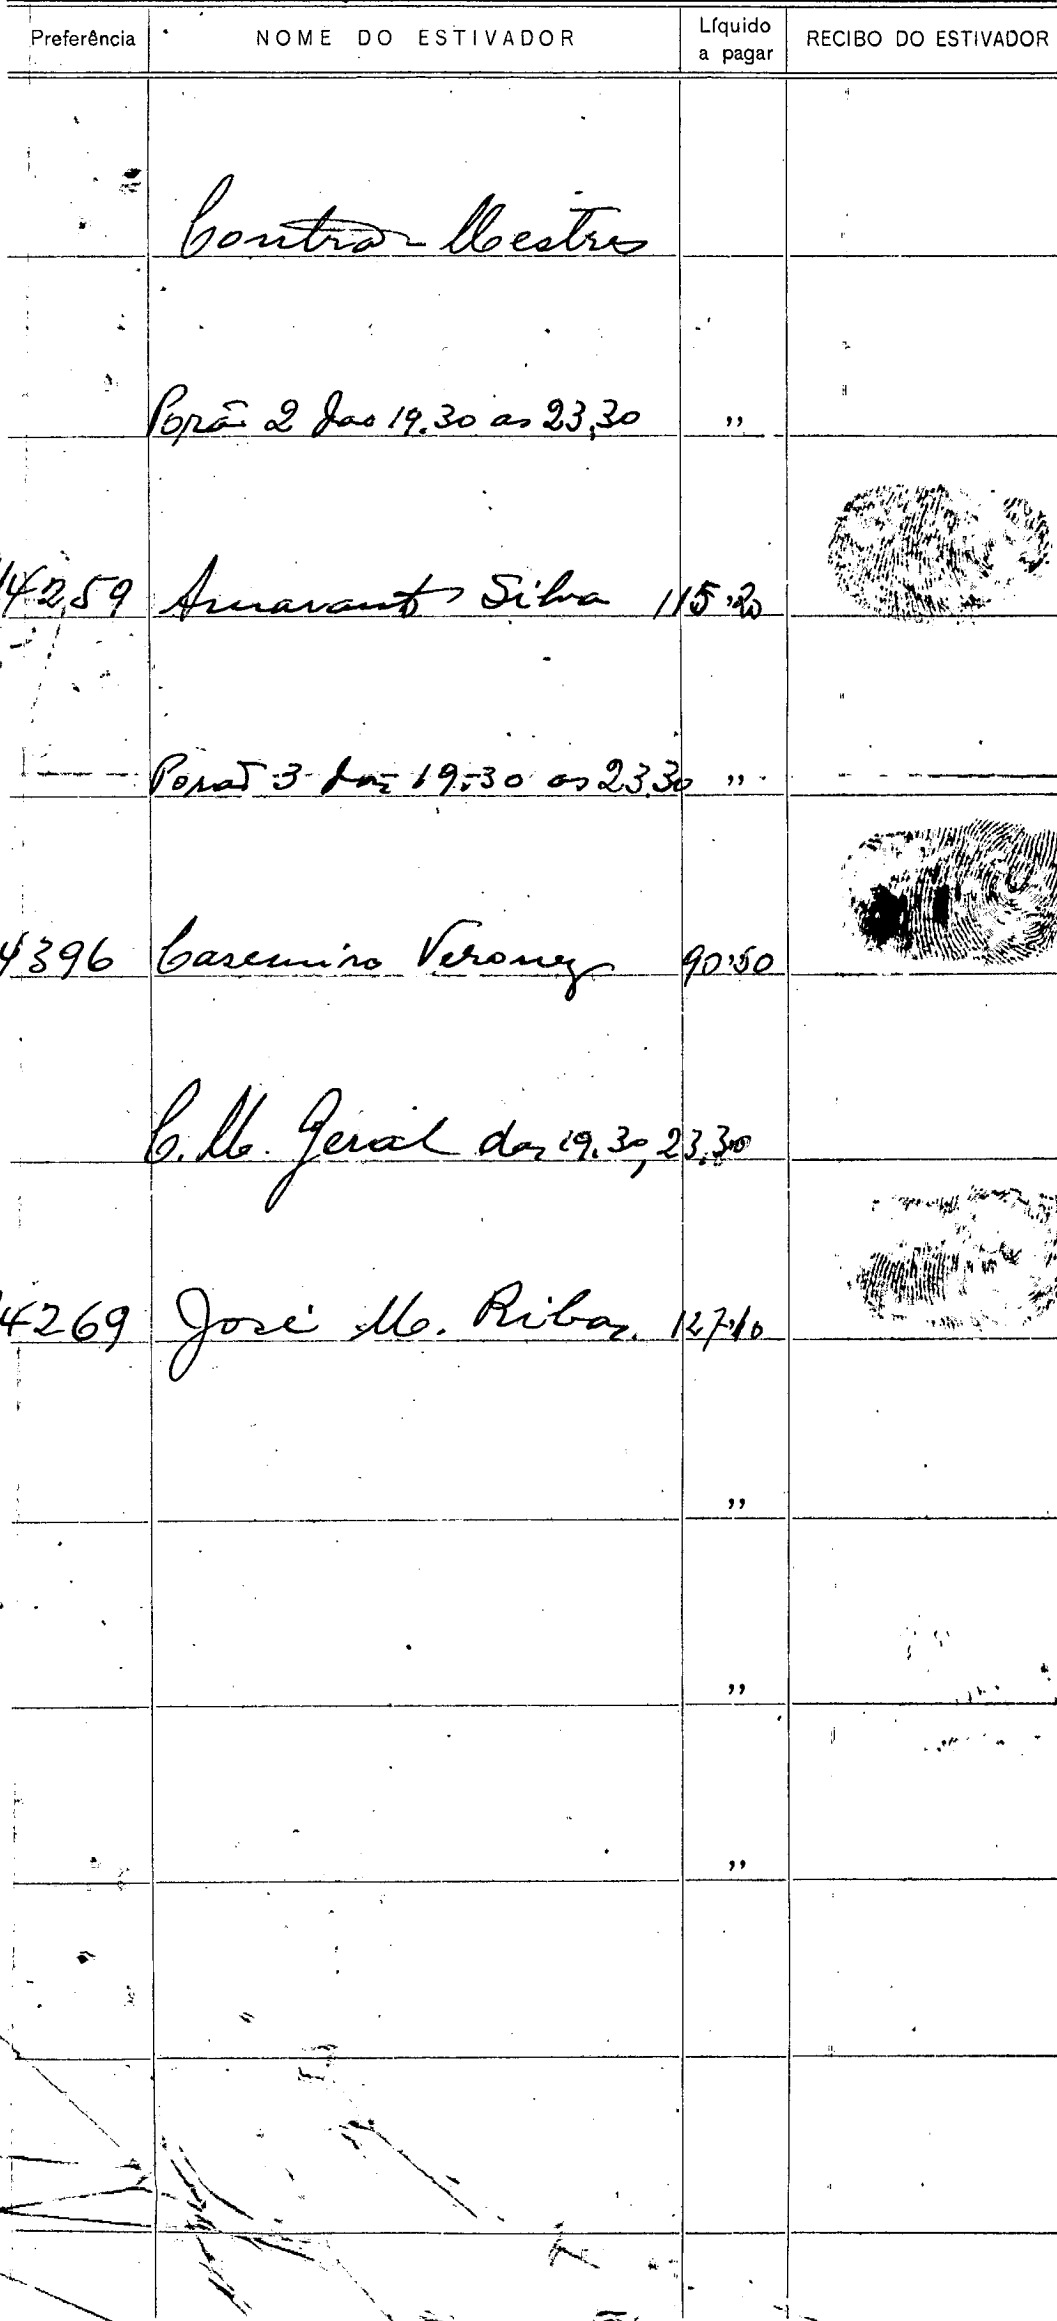 Preferência NOME DO ESTIVADOR Líquido a pagar RECIBO DO ESTIVADOR
Contra-Mestres
Porão 2 das 19.30 as 23,30 ,,
14259 Amarante Silva 115,20
Porão 3 das 19:30 as 23.30 ,,
4396 Casemiro Veronez 90,50
C. M. Geral das 19.30, 23.30
4269 José M. Ribas. 127,10
,,
,,
,,